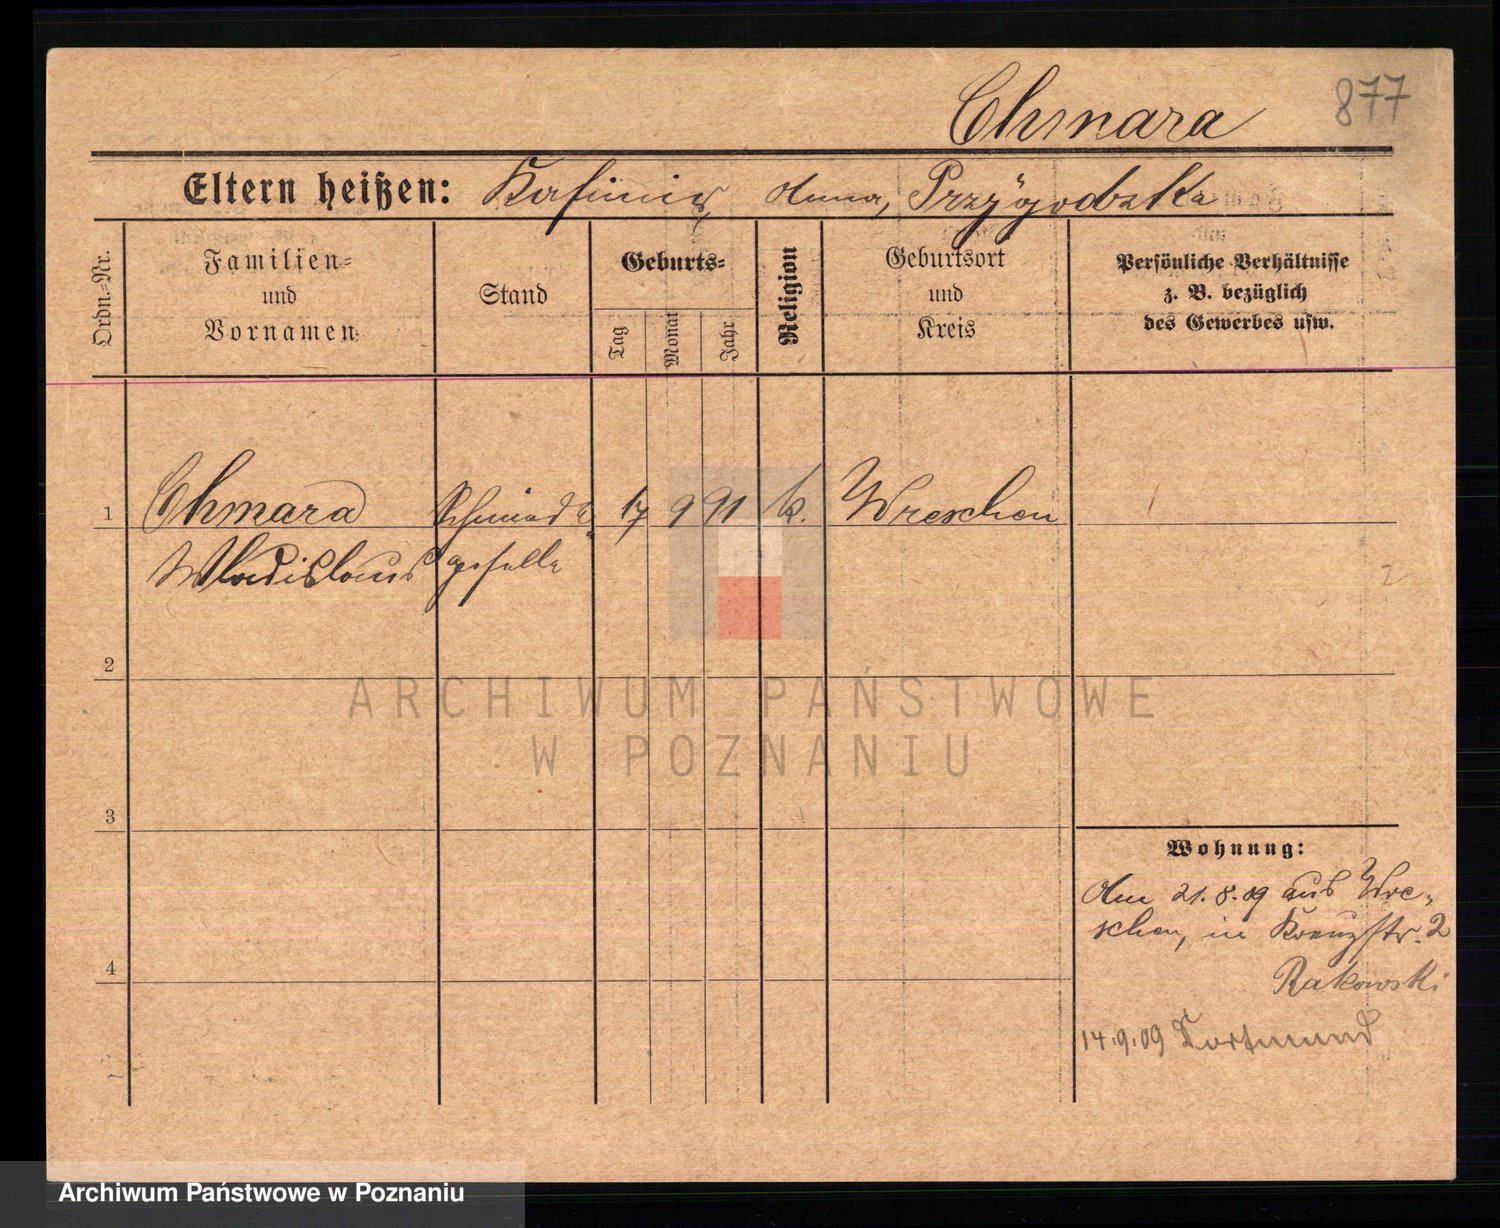 Chmara
877
Eltern heißen: Kasimir, Anna, Przygodzka
Ordn.-Nr.
Familien-
und
Vornamen
Stand
Geburts-
Tag
Monat
Jahr
Religion
Geburtsort
und
Kreis
Persönliche Verhältnisse
z. B. bezüglich
des Gewerbes usw.
1 Chmara Schmiede- 17 9 91 k. Wreschen
Wladislaus geselle
2
ARCHIWUM PAŃSTWOWE
W POZNANIU
3
Wohnung:
Am 21.8.09 aus Wre-
schen, in Kreuzstr. 2
4
Rakowski
14.9.09 Dortmund
Archiwum Państwowe w Poznaniu